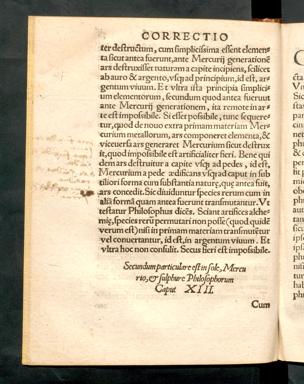 CORRECTIO
ter destructum, cum simplicissima essent elemen-
ta sicut antea fuerunt, ante Mercurij generationē
ars destruxisset naturam a capite incipens, scilicet
ab auro & argento, vsq; ad principium, id est, ar-
gentum viuum. Et vltra ista principia simplicis
sim elementorum, secundum quod antea fuerunt
ante Mercurij generationem, ita remote in ar
te est impossibile. Si esset possibile, tunc sequere-
tur, quod de nouo extra primam materiam Mer-
curium metallorum, ars componeret elementa, &
viceuersa ars generaret Mercurium sicut destrux
it, quod impossibile est artificialiter fieri. Bene qui
dem ars destruitur a capite vsq; ad pedes, id est,
Mercurium a pede ædificans vsq; ad caput in sub
tiliori forma cum substantia nature, que antea fuit,
ars concedit. Sic diuiduntur species rerum cum in
aliā formā quam antea fuerunt transmutantur. Vt
testatur Philosophus dicēs. Sciant artifices alche-
mię, species rerū permutari non posse (quod quidē
verum est) nisi in primam materiam transmutētur
vel conuertantur, id est, in argentum viuum. Et
vltra hoc non consulit. Secus fieri est impossibile.
Secundum particulare est in sole, Mercu
rio, & sulphure Philosophorum
Caput XIII.
Cum